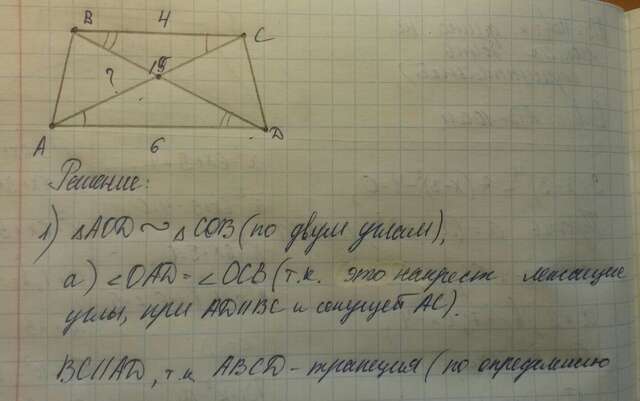 B 4 C
? 15
A 6 D
Решение:
1) △AOD ~ △COB (по двум углам),
a) ∠OAD = ∠OCB (т.к. это накрест лежащие
углы, при AD||BC и секущей AC).
BC||AD, т.к. ABCD - трапеция (по определению